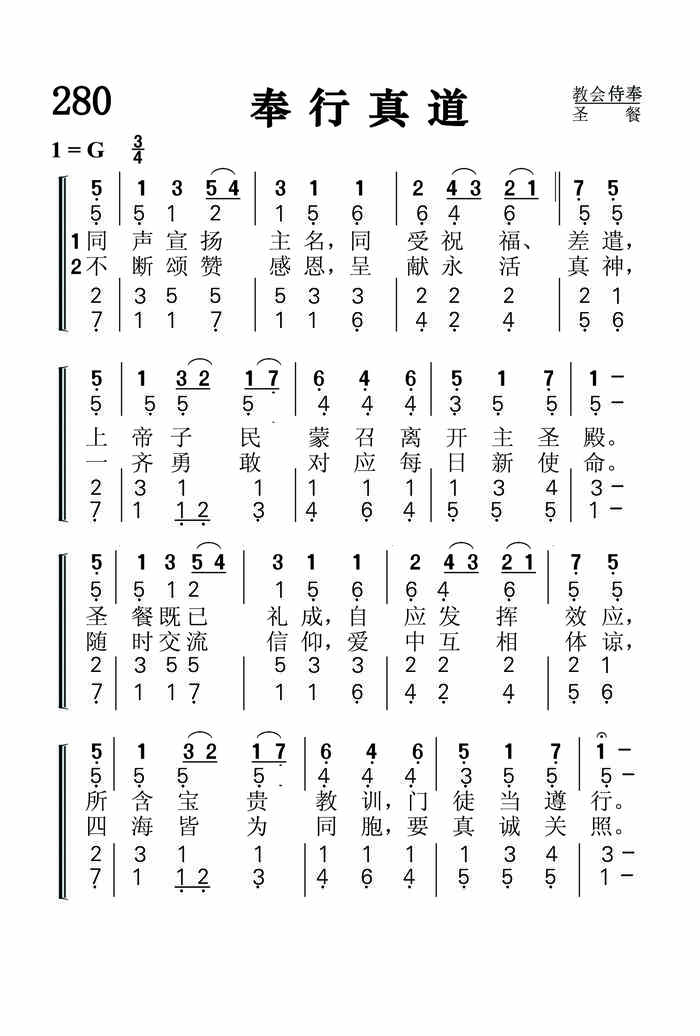 280 奉行真道 教会侍奉
圣餐
1=G 3/4
5 | 1 3 5 4 | 3 1 1 | 2 4 3 2 1 || 7 5
5 | 5 1 2 | 1 5 6 | 6 4 6 || 5 5
1同 声宣扬 主名,同 受祝福、差遣,
2不 断颂赞 感恩,呈 献永活 真神,
2 | 3 5 5 | 5 3 3 | 2 2 2 | 2 1
7 | 1 1 7 | 1 1 6 | 4 2 4 | 5 6
5 | 1 3 2 1 7 | 6 4 6 | 5 1 7 | 1 –
5 | 5 5 5 | 4 4 4 | 3 5 5 | 5 –
上 帝子民 蒙召离开主圣殿。
一 齐勇敢 对应每日新使命。
2 | 3 1 1 | 1 1 1 | 1 3 4 | 3 –
7 | 1 1 2 3 | 4 6 4 | 5 5 5 | 1 –
5 | 1 3 5 4 | 3 1 1 | 2 4 3 2 1 | 7 5
5 | 5 1 2 | 1 5 6 | 6 4 6 | 5 5
圣 餐既已 礼成,自 应发挥 效应,
随 时交流 信仰,爱 中互相 体谅,
2 | 3 5 5 | 5 3 3 | 2 2 2 | 2 1
7 | 1 1 7 | 1 1 6 | 4 2 4 | 5 6
5 | 1 3 2 1 7 | 6 4 6 | 5 1 7 | 1 –
5 | 5 5 5 | 4 4 4 | 3 5 5 | 5 –
所 含宝贵 教训,门徒当遵行。
四 海皆为 同胞,要真诚关照。
2 | 3 1 1 | 1 1 1 | 1 3 4 | 3 –
7 | 1 1 2 3 | 4 6 4 | 5 5 5 | 1 –